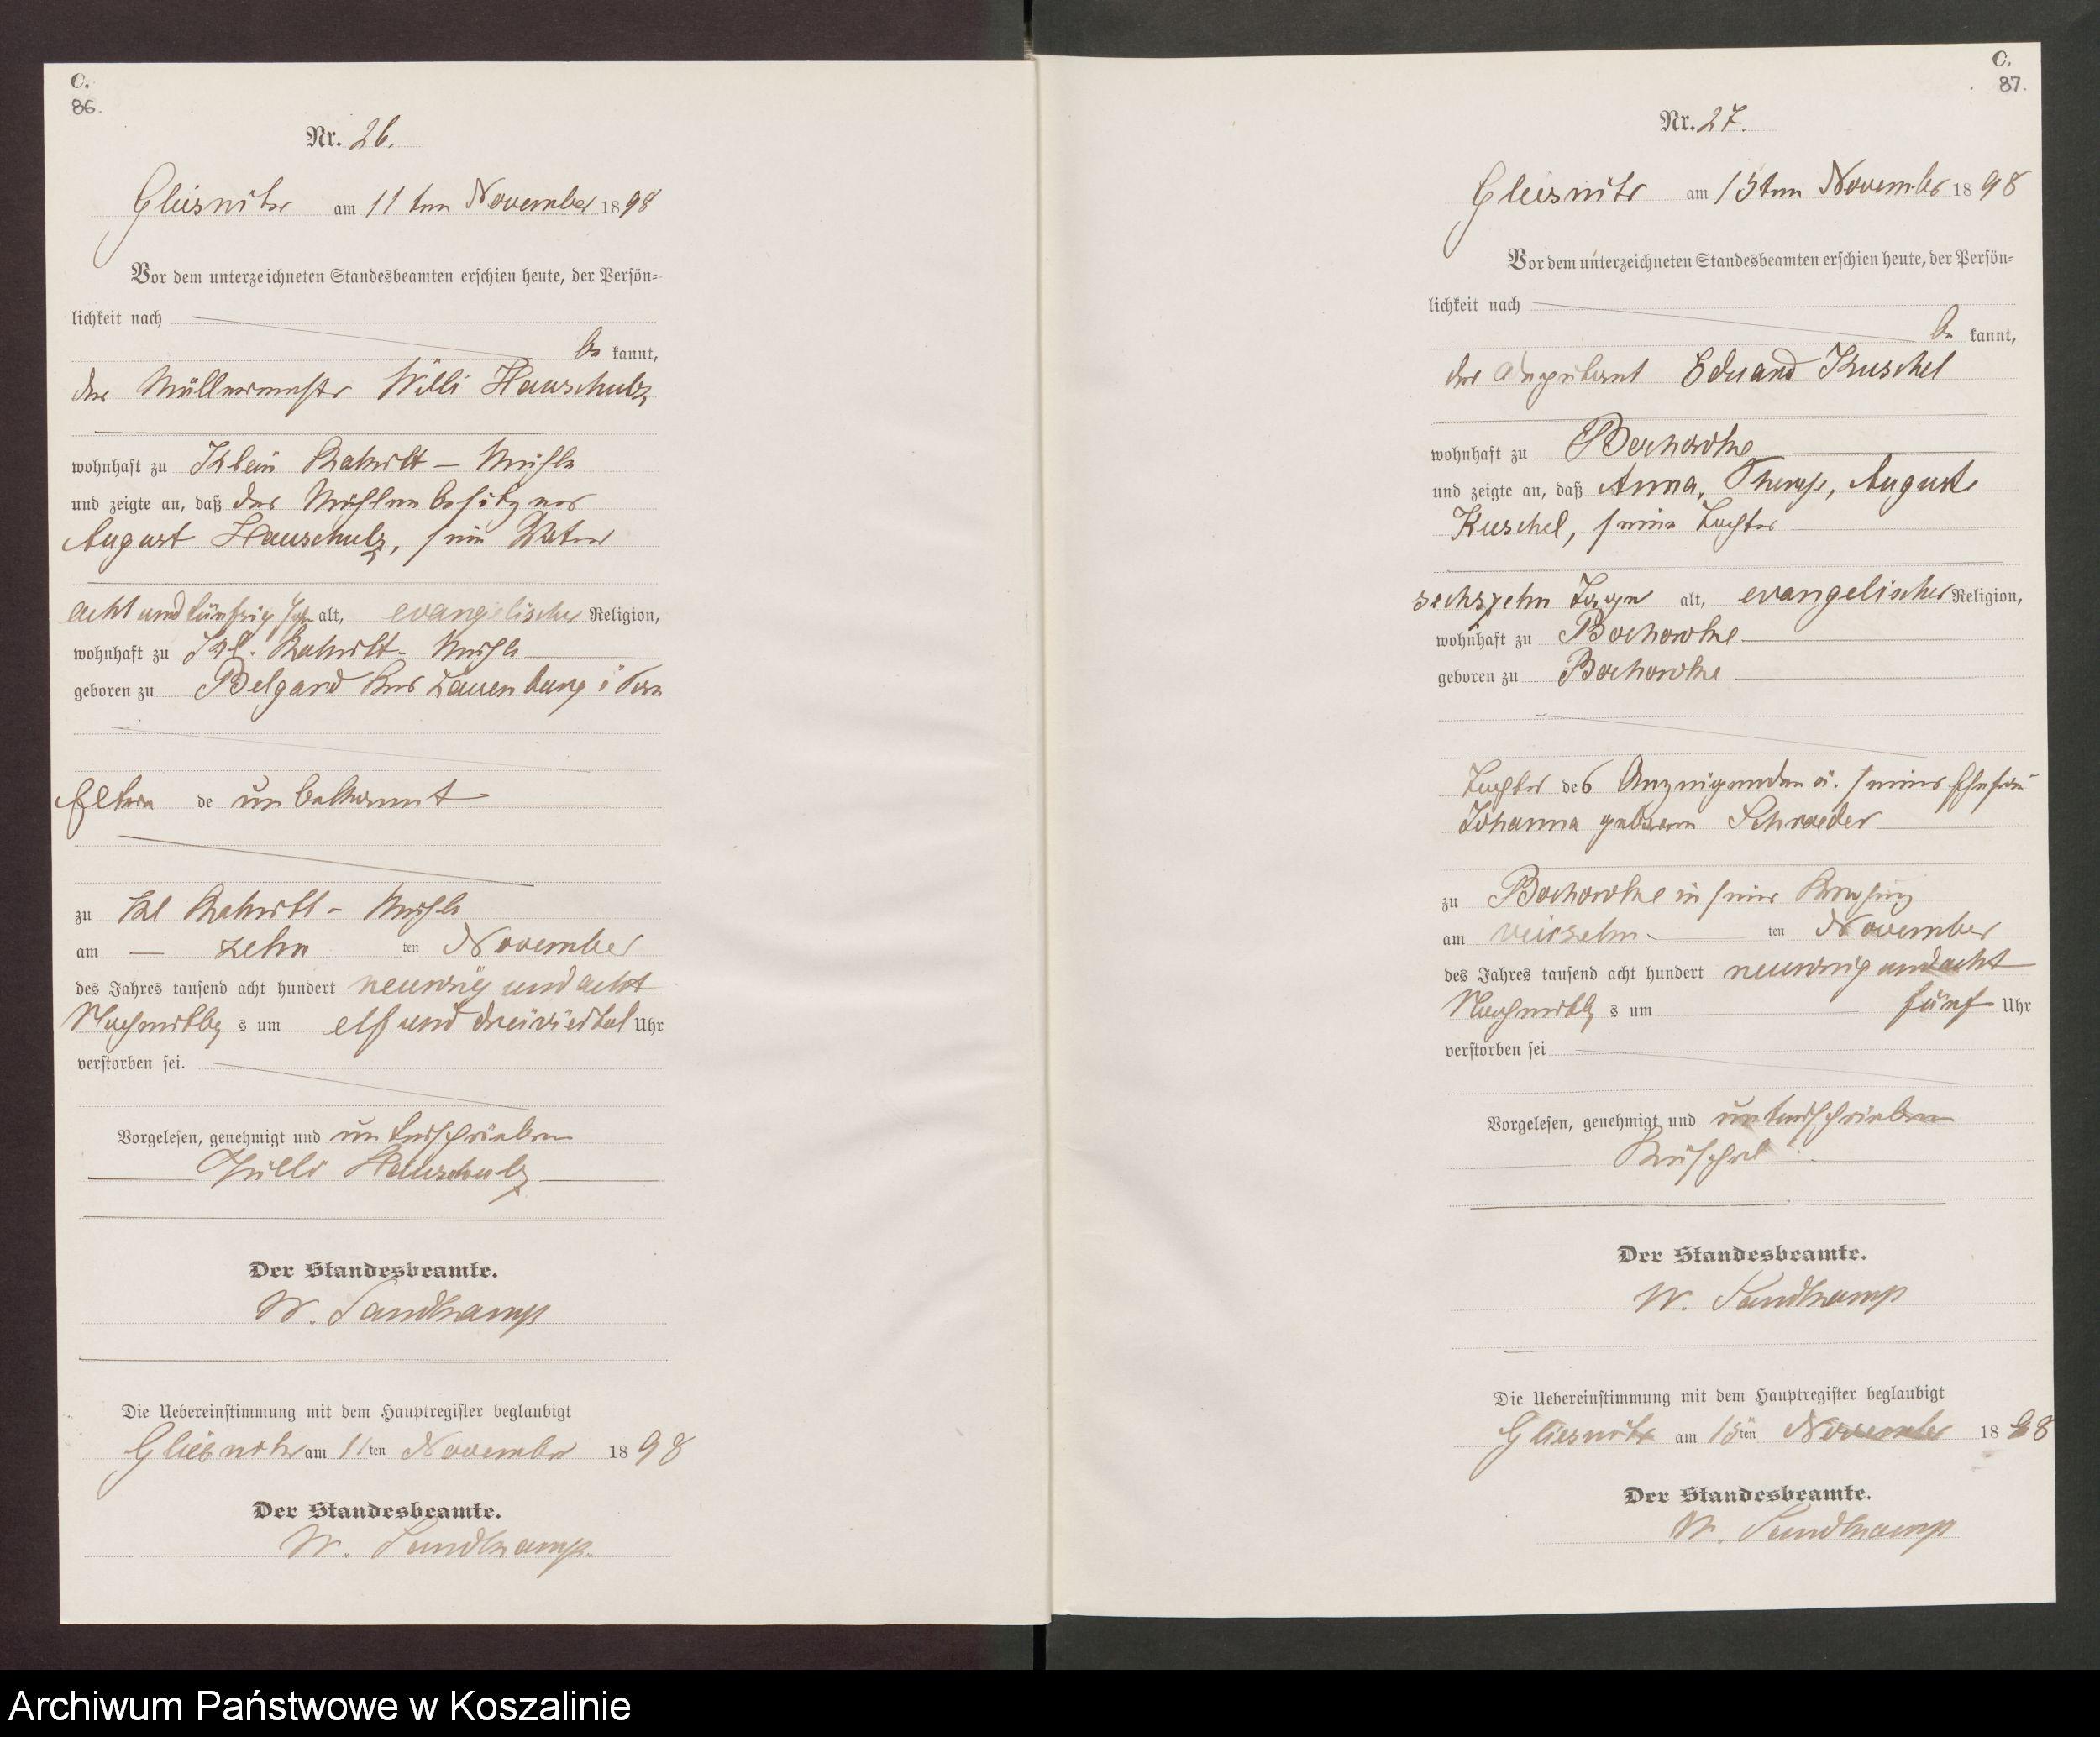 C.
86.
Nr. 26.
Gliesnitz am 11ten November 1898
Vor dem unterzeichneten Standesbeamten erschien heute, der Persön-
lichkeit nach
be kannt,
der Müllermeister Willi Hauschulz
wohnhaft zu Klein Rakitt - Mühle
und zeigte an, daß der Mühlenbesitzer
August Hauschulz, sein Vater
acht und fünfzig Jahr alt, evangelischer Religion,
wohnhaft zu Kl. Rakitt - Mühle
geboren zu Belgard Kreis Lauenburg i Pom
Eltern de unbekannt
zu Kl Rakitt - Mühle
am zehn ten November
des Jahres tausend acht hundert neunzig und acht
Nachmittag s um elf und dreiviertel Uhr
verstorben sei.
Vorgelesen, genehmigt und unterschrieben
Willi Hauschulz
Der Standesbeamte.
W. Sandkamp
Die Uebereinstimmung mit dem Hauptregister beglaubigt
Gliesnitz am 11ten November 1898
Der Standesbeamte.
W. Sandkamp.
C.
87.
Nr. 27.
Gliesnitz am 15ten November 1898
Vor dem unterzeichneten Standesbeamten erschien heute, der Persön-
lichkeit nach
be kannt,
der Eduard Kuschel
wohnhaft zu Bochowke
und zeigte an, daß Anna, Therese, Auguste
Kuschel, seine Tochter
sechszehn Tage alt, evangelischer Religion,
wohnhaft zu Bochowke
geboren zu Bochowke
Tochter des Anzeigenden u. seiner Ehefrau
Johanna geborenen Schroeder
zu Bochowke in seiner Behausung
am vierzehn ten November
des Jahres tausend acht hundert neunzig und acht
Nachmittag s um fünf Uhr
verstorben sei
Vorgelesen, genehmigt und unterschrieben
Kuschel
Der Standesbeamte.
W. Sandkamp
Die Uebereinstimmung mit dem Hauptregister beglaubigt
Gliesnitz am 15ten November 1898
Der Standesbeamte.
W. Sandkamp
Archiwum Państwowe w Koszalinie